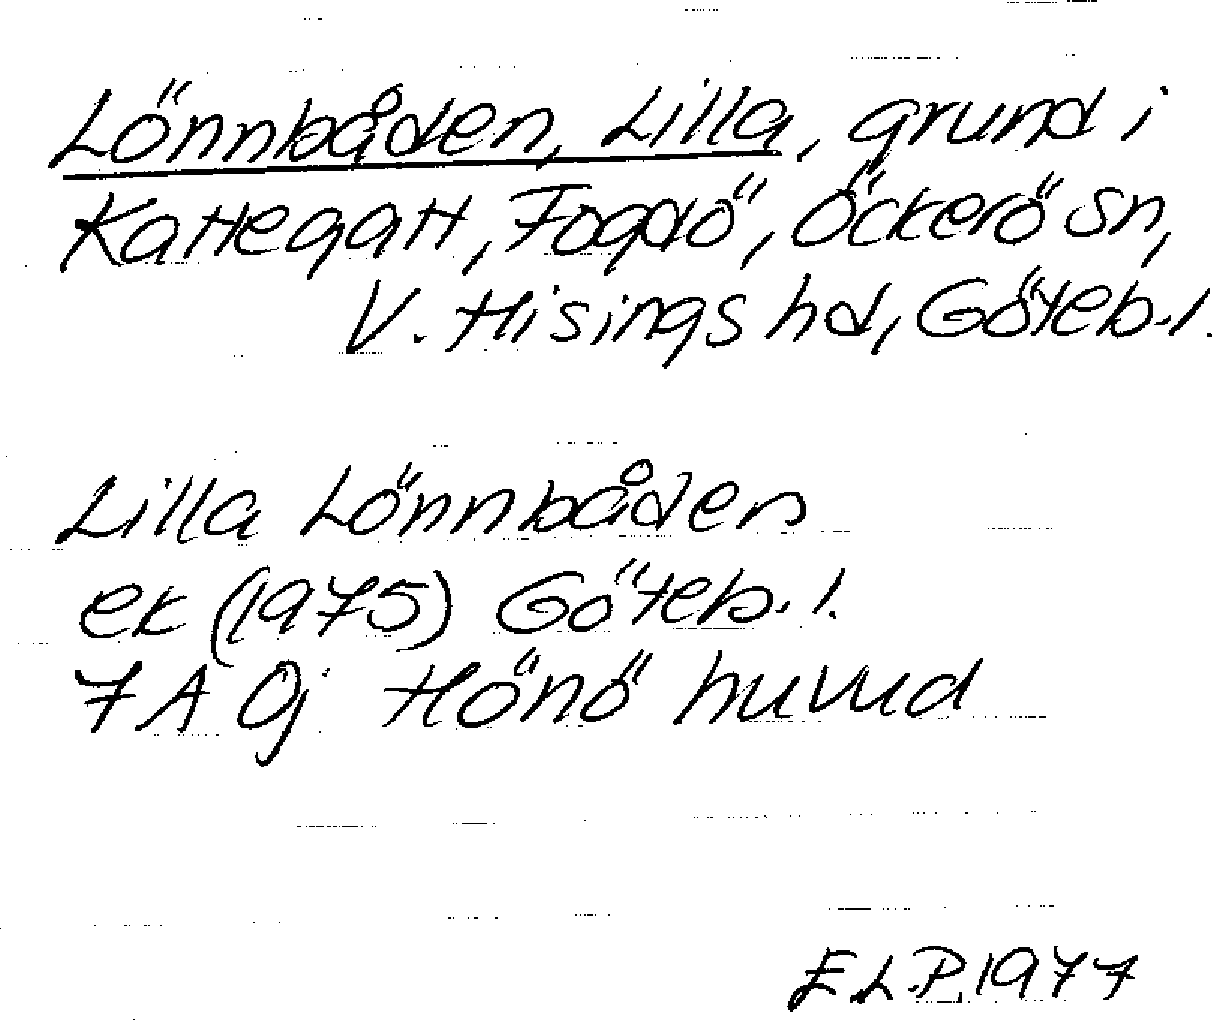 Lönnbåden, Lilla, grund i
Kattegatt, Fogdö, Öckerö sn,
V. Hisings hd, Göteb. l.
Lilla Lönnbåden
ek (1975) Göteb. l.
7 A 0j Hönö huvud
E.L.P. 1977